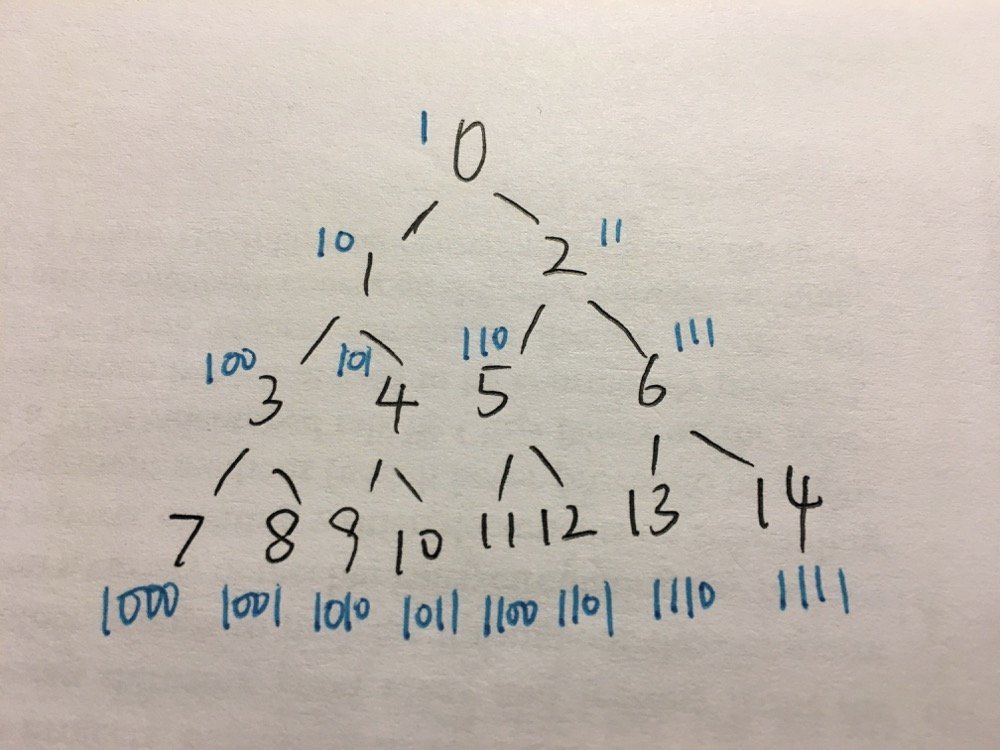 1 0
10 1 2 11
100 3 101 4 110 5 6 111
7 8 9 10 11 12 13 14
1000 1001 1010 1011 1100 1101 1110 1111